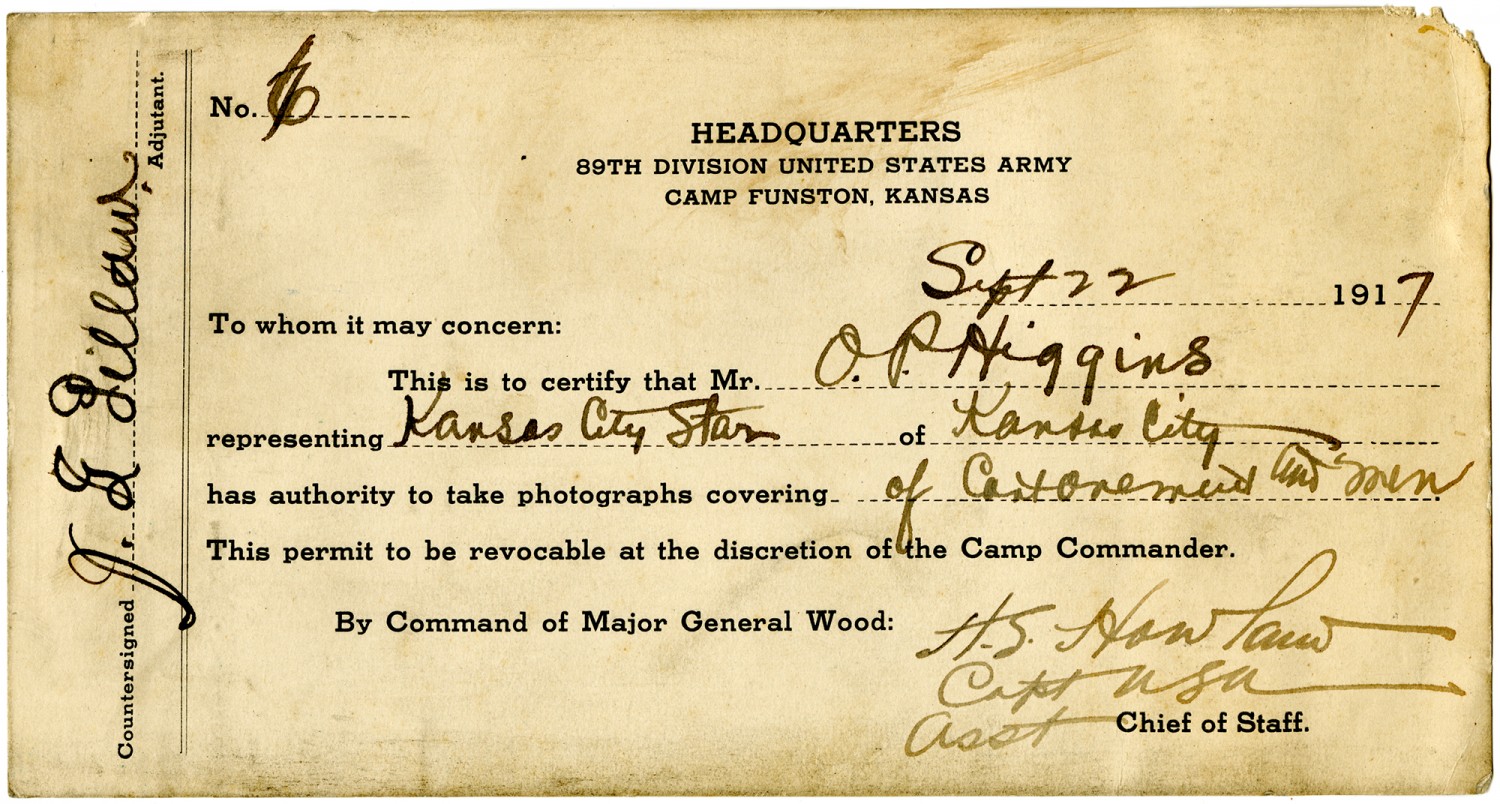 No. 6
HEADQUARTERS
89TH DIVISION UNITED STATES ARMY
CAMP FUNSTON, KANSAS
Sept 22 1917
To whom it may concern:
This is to certify that Mr. O. P. Higgins
representing Kansas City Star of Kansas City
has authority to take photographs covering of Cantonement and men
This permit to be revocable at the discretion of the Camp Commander.
By Command of Major General Wood:
Capt USA
Asst Chief of Staff.
Countersigned J. E.
Adjutant.